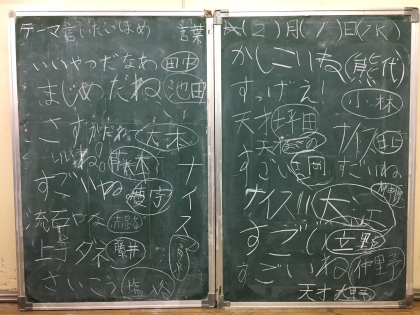 テーマ言いたいほめ言葉
いいやつだなあ 田中
まじめだね 池田
さすがだね 大木
いいね。 藤本
すごいね
ナイス
流石やな
上手だね 藤井
さいこう 塩谷
(2)月(1)日(水)
かしこいね 熊代
すっげえ! 小林
天才 坪田
天才
ナイス
すごい
すごいね
ナイス!! 大江
すごい 立野
すごいね 佐野
天才 水野